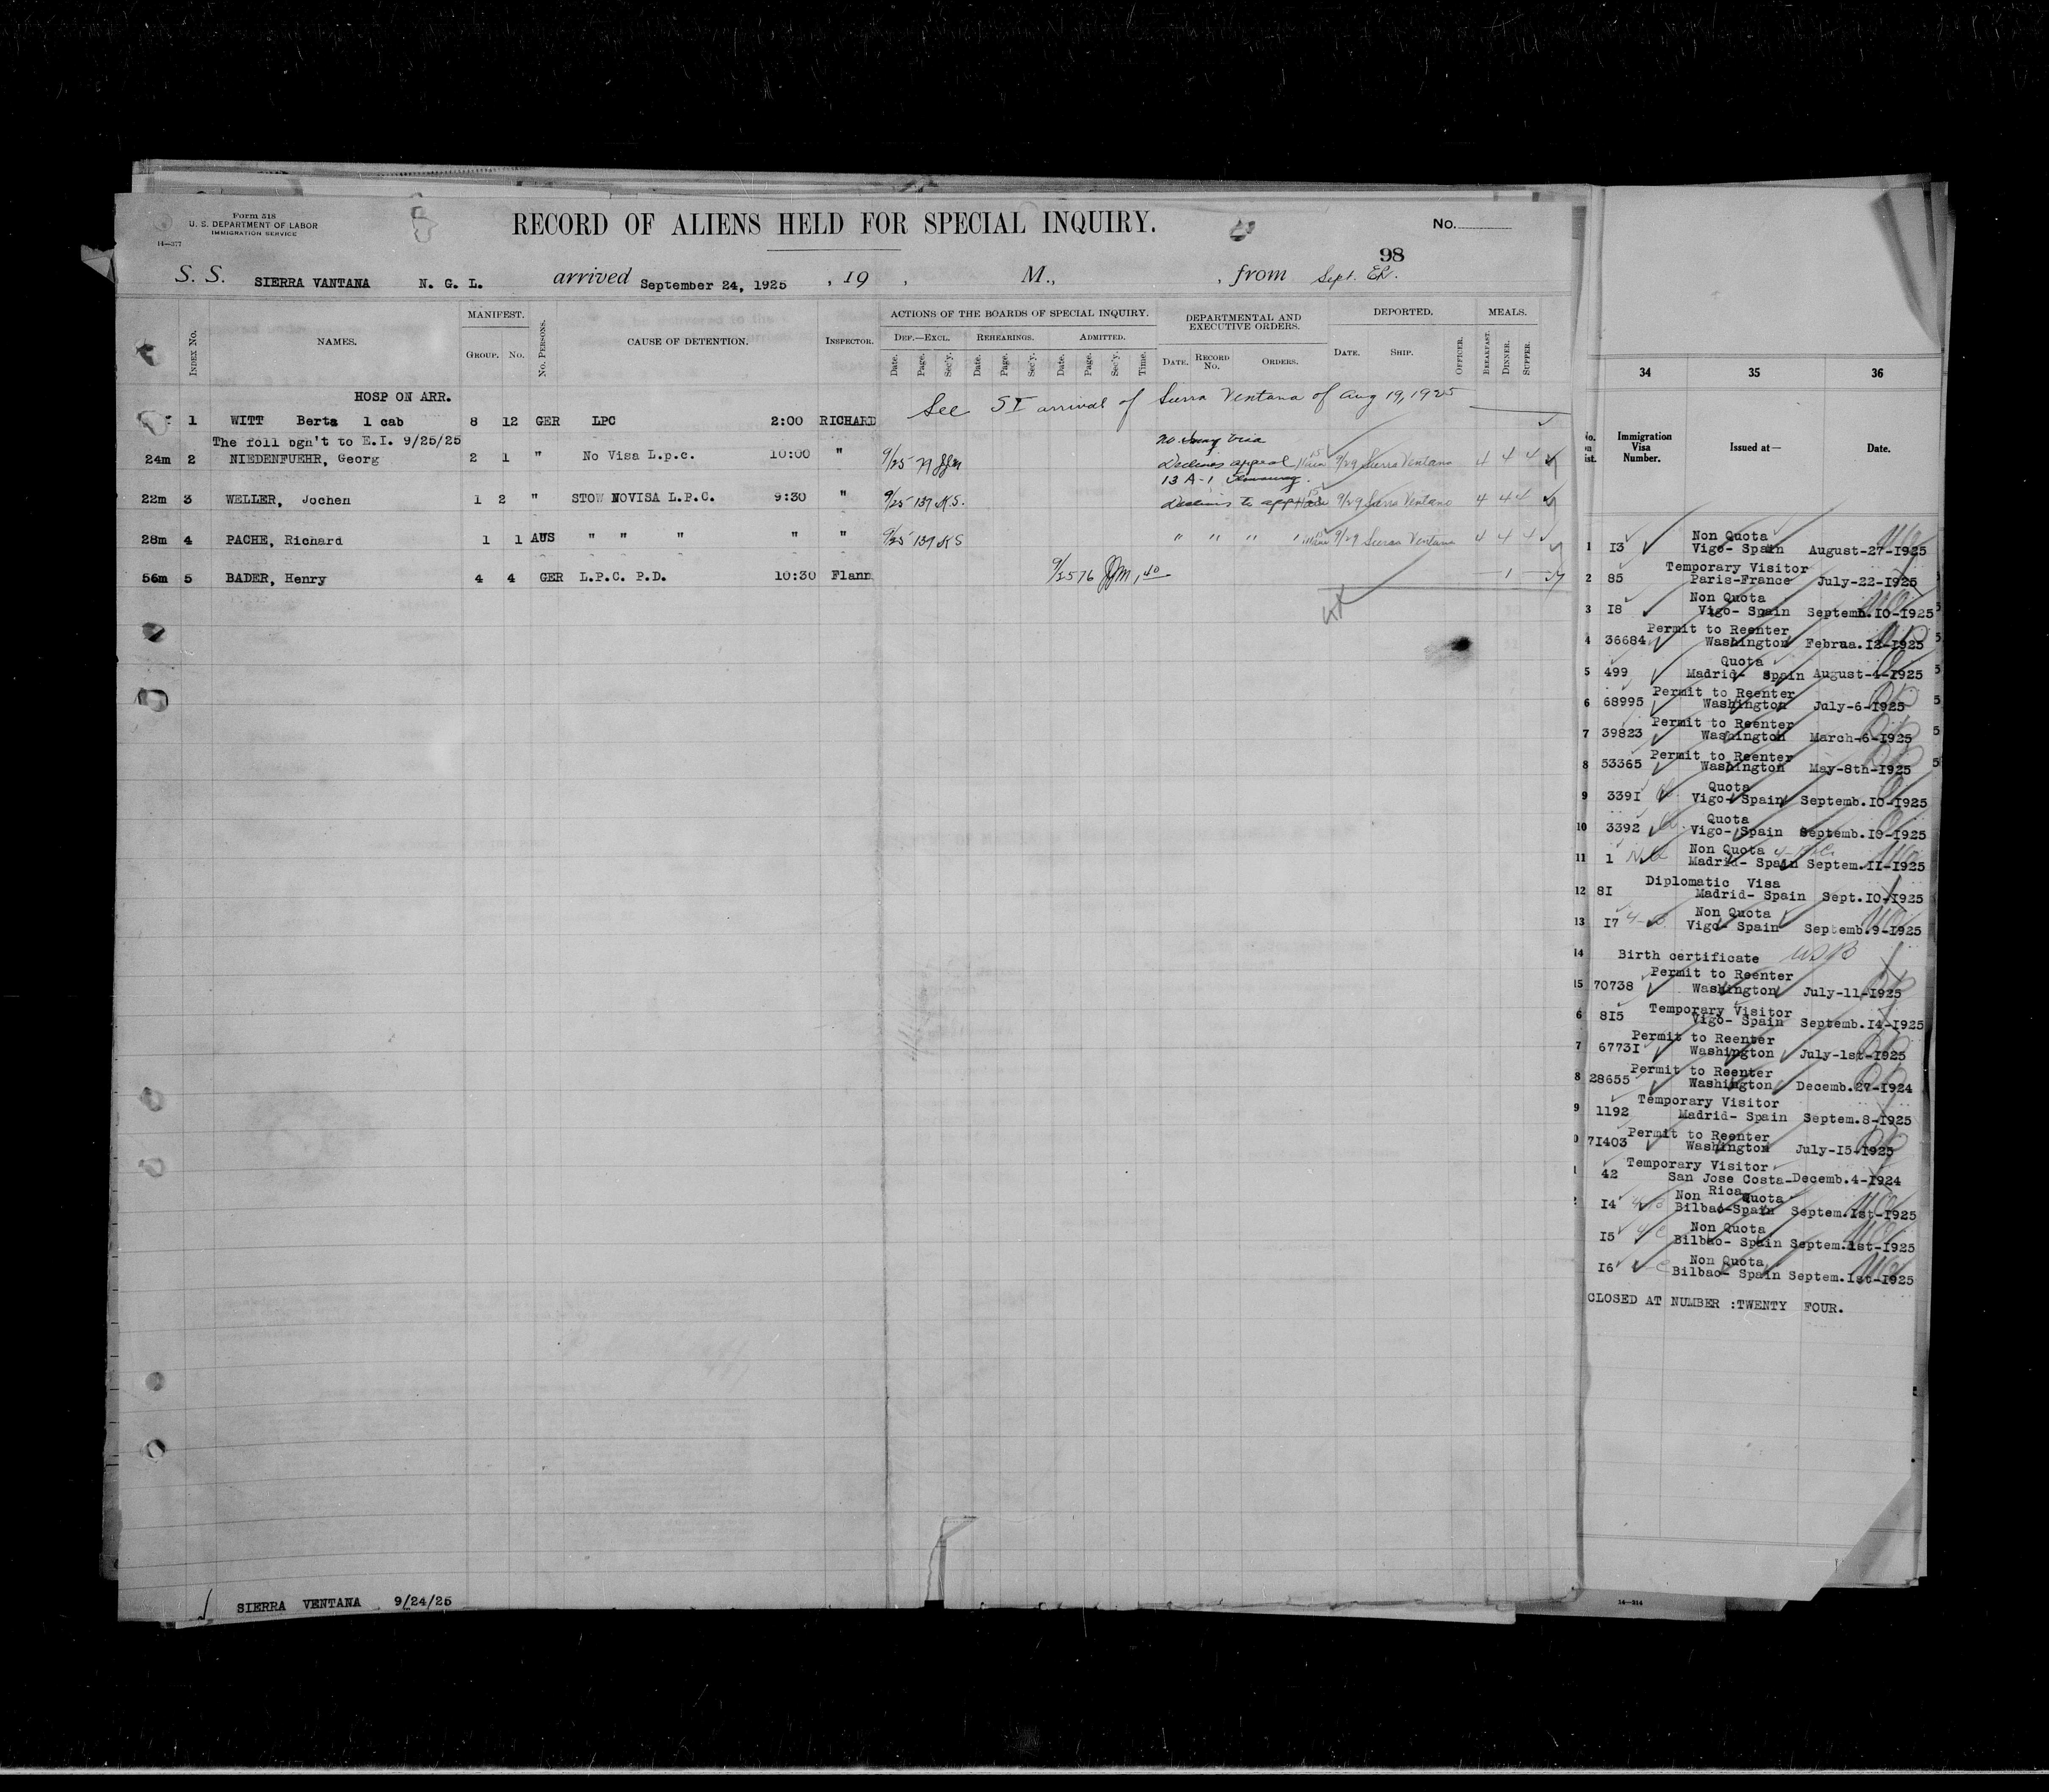 Form 518
U. S. DEPARTMENT OF LABOR
IMMIGRATION SERVICE
14—377
RECORD OF ALIENS HELD FOR SPECIAL INQUIRY.
No.
98
S. S. SIERRA VANTANA N. G. L. arrived September 24, 1925 , 19 , M., , from Sept. EL.
INDEX NO. NAMES. MANIFEST. GROUP. NO. NO. PERSONS. CAUSE OF DETENTION. INSPECTOR. ACTIONS OF THE BOARDS OF SPECIAL INQUIRY. DEPARTMENTAL AND EXECUTIVE ORDERS. DEPORTED. MEALS.
DEF.—EXCL. REHEARINGS. ADMITTED.
Date. Page. Sec'y. Date. Page. Sec'y. Date. Page. Sec'y. Time. DATE. RECORD NO. ORDERS. DATE. SHIP. OFFICER. BREAKFAST. DINNER. SUPPER.
HOSP ON ARR.
1 WITT Berta 1 cab 8 12 GER LPC 2:00 RICHARD See SI arrival of Sierra Ventana of Aug 19, 1925
The foll bgn't to E.I. 9/25/25
no visa
24m 2 NIEDENFUEHR, Georg 2 1 " No Visa L.p.c. 10:00 " 9/25 Declines appeal 15 9/29 Sierra Ventana 4 4 4
13 A-1
22m 3 WELLER, Jochen 1 2 " STOW NOVISA L.P.C. 9:30 " 9/25 137 K.S. Declines to app 15 9/29 Sierra Ventana 4 4 4
28m 4 PACHE, Richard 1 1 AUS " " " " " 9/25 137 K S " " " " 9/29 Sierra Ventana 4 4 4
56m 5 BADER, Henry 4 4 GER L.P.C. P.D. 10:30 Flann 9/25 76 JJM 1 40 1
SIERRA VENTANA 9/24/25
34 35 36
Immigration Visa Number. Issued at— Date.
Non Quota
1 I3 Vigo- Spain August-27-I925
Temporary Visitor
2 85 Paris-France July-22-I925
Non Quota
3 I8 Vigo- Spain Septemb.I0-I925
Permit to Reenter
4 36684 Washington Februa.I2-I925
Quota
5 499 Madrid- Spain August-4-I925
Permit to Reenter
6 68995 Washington July-6-I925
Permit to Reenter
7 39823 Washington March-6-I925
Permit to Reenter
8 53365 Washington May-8th-I925
Quota
9 339I Vigo-Spain Septemb.I0-I925
Quota
10 3392 Vigo-Spain Septemb.I0-I925
Non Quota
11 1 Madrid- Spain Septem.II-I925
Diplomatic Visa
12 8I Madrid- Spain Sept.I0-I925
Non Quota
13 I7 Vigo-Spain Septemb.9-I925
14 Birth certificate USB
Permit to Reenter
15 70738 Washington July-11-I925
Temporary Visitor
6 8I5 Vigo- Spain Septemb.I4-I925
Permit to Reenter
7 6773I Washington July-1st-I925
Permit to Reenter
8 28655 Washington Decemb.27-I924
Temporary Visitor
9 1192 Madrid- Spain Septem.8-I925
Permit to Reenter
0 7I403 Washington July-I5-I925
Temporary Visitor
1 42 San Jose Costa-Decemb.4-I924
Rica
Non Quota
2 I4 Bilbao-Spain Septem.Ist-I925
Non Quota
I5 Bilbao- Spain Septem.1st-I925
Non Quota
I6 Bilbao- Spain Septem.Ist-I925
CLOSED AT NUMBER :TWENTY FOUR.
14—314